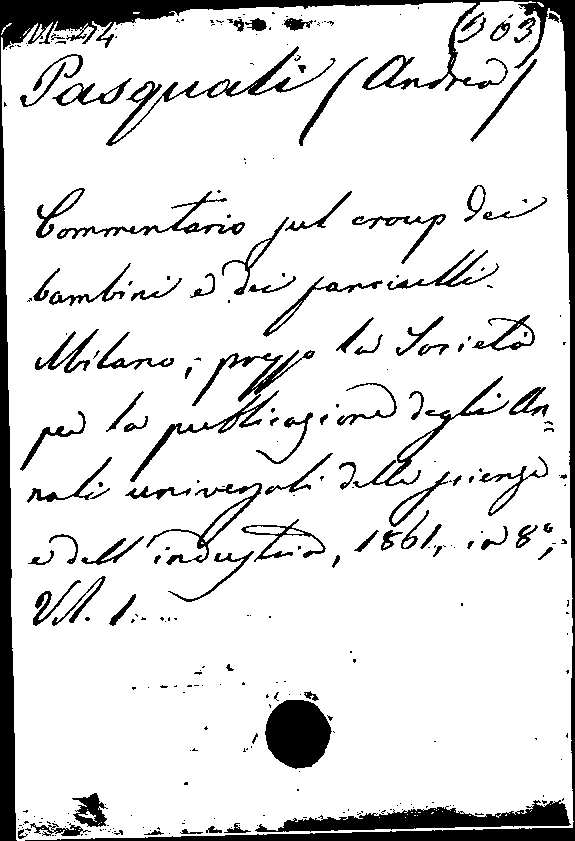 M-74 (303)
Pasquali (Andrea)
Commentario sul croup dei
bambini e dei fanciulli.
Milano, presso la Società
per la publicazione degli An=
nali universali delle scienze
e dell'industria, 1861, in 8°,
Vol. 1.